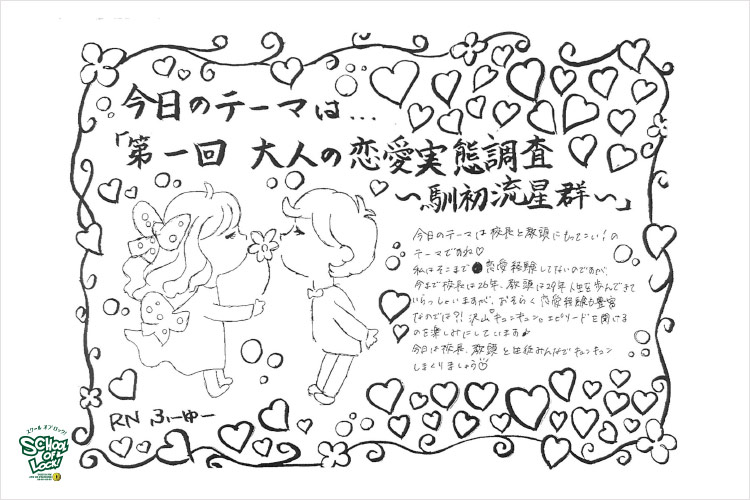 今日のテーマは...
「第一回 大人の恋愛実態調査
〜馴初流星群〜」
今日のテーマは校長と教頭にもってこい!の
テーマですね♡
私はそこまで恋愛経験してないのですが、
今まで校長は26年、教頭は29年人生を歩んできて
いらっしゃいますが、おそらく恋愛経験も豊富
なのでは?!沢山キュンキュン。エピソードを聞ける
のを楽しみにしています♪
今日は校長、教頭と生徒みんなでキュンキュン
しまくりましょう
RN ふーゆー
スクール オブ ロック!
SCHOOL
OF
LOCK!